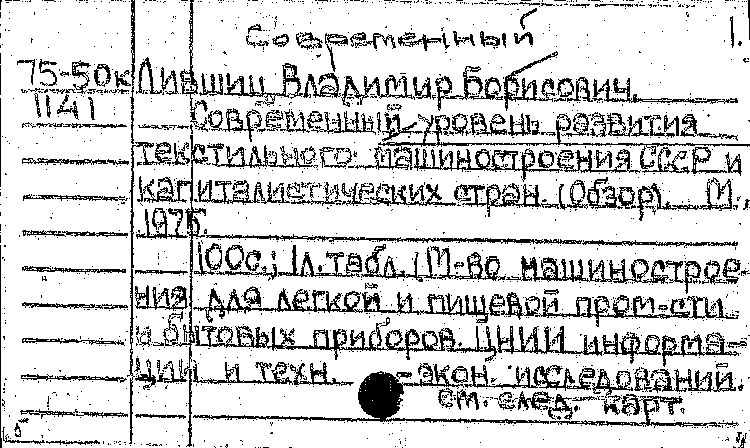 Современный 1.
75-50к Лившиц Владимир Борисович.
1141 Современный уровень развития
текстильного машиностроения СССР и
капиталистических стран. (Обзор). М.,
1975.
100с.; 1л. табл. (М-во машинострое-
ния для легкой и пищевой пром-сти
и бытовых приборов. ЦНИИ информа-
ции и техн. -экон. исследований.
см. след. карт.